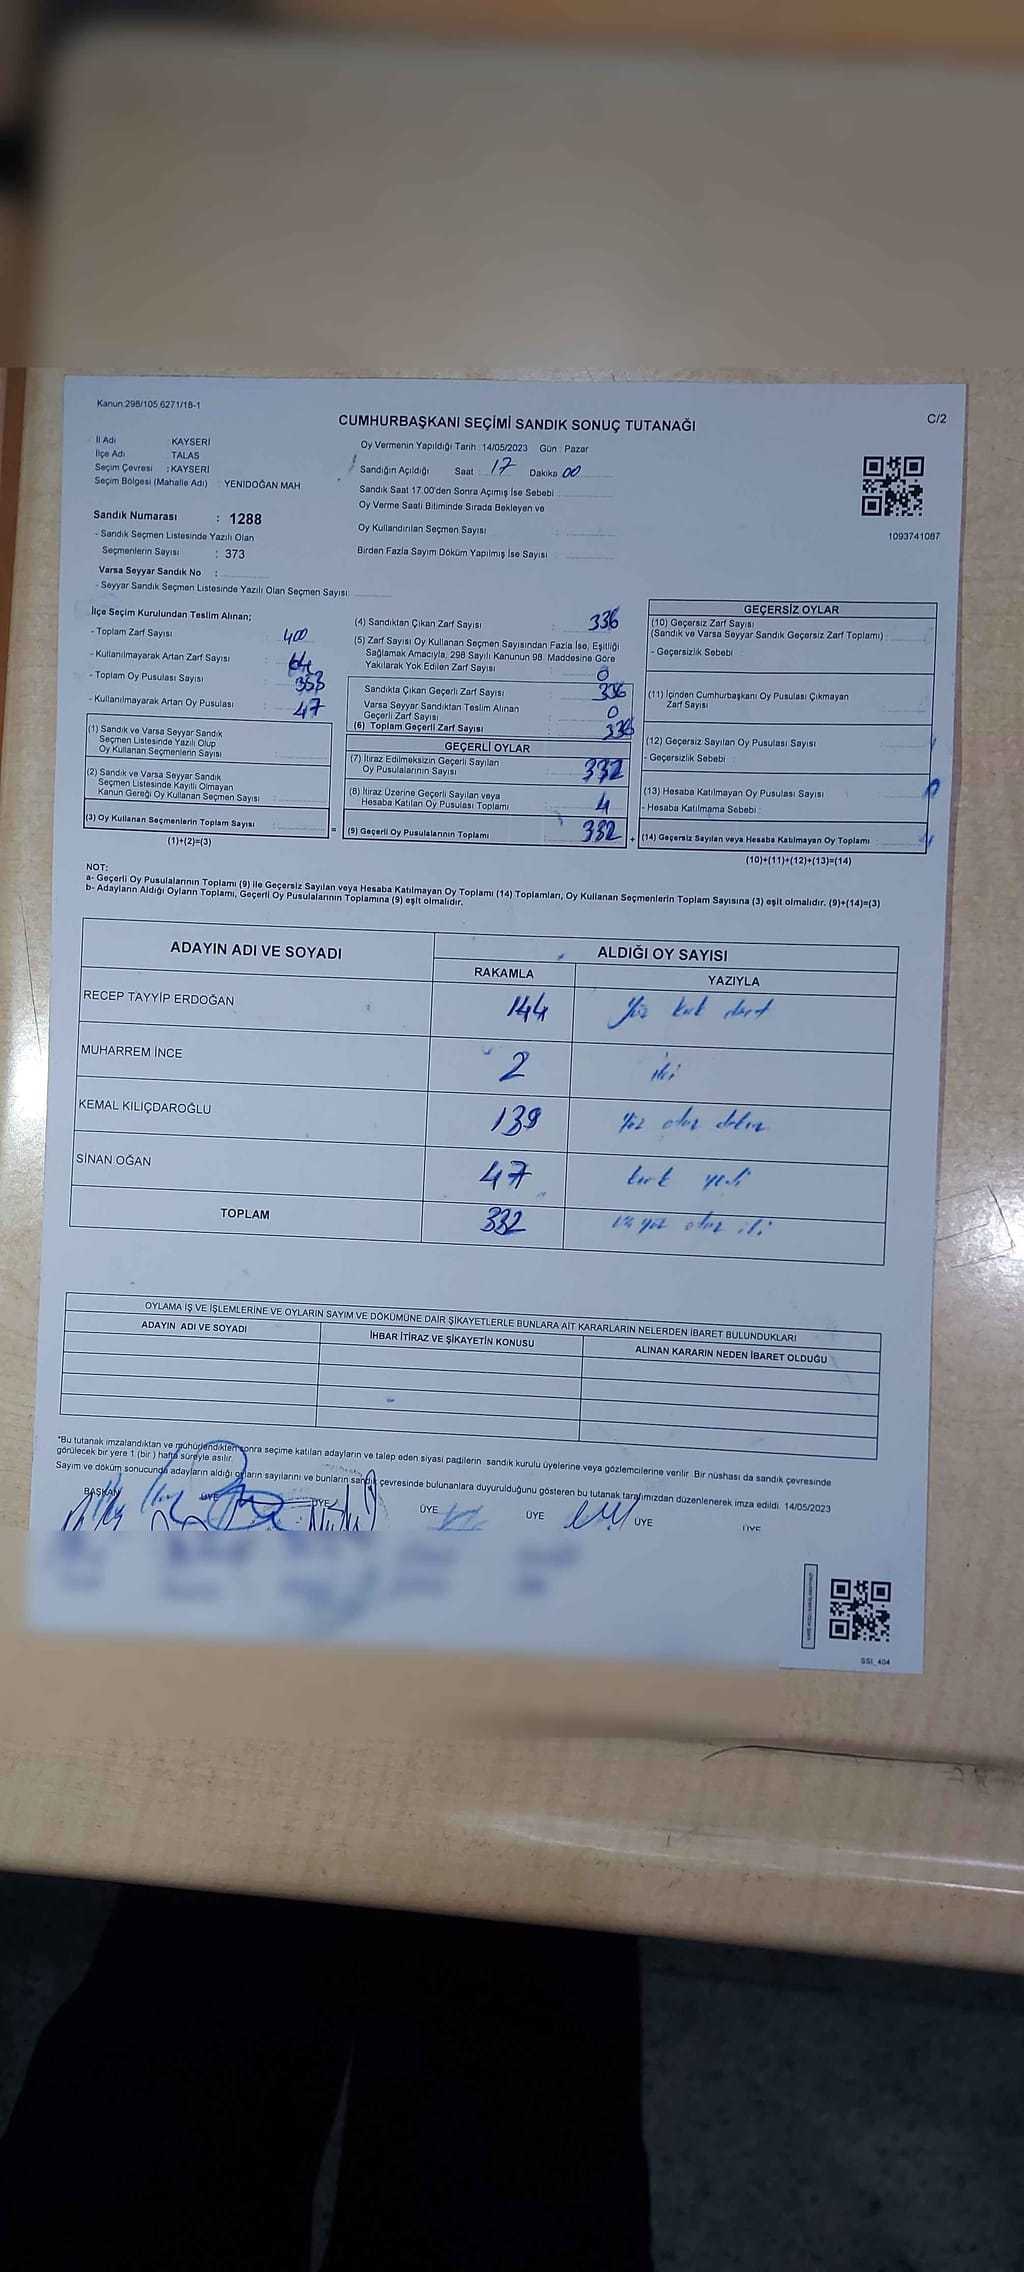 Kanun:298/105,6271/18-1
CUMHURBAŞKANI SEÇİMİ SANDIK SONUÇ TUTANAĞI
C/2
İl Adı : KAYSERİ
İlçe Adı : TALAS
Seçim Çevresi : KAYSERİ
Seçim Bölgesi (Mahalle Adı) : YENİDOĞAN MAH.
Oy Vermenin Yapıldığı Tarih :14/05/2023 Gün : Pazar
Sandığın Açıldığı Saat : 17 Dakika 00
Sandık Saat 17.00'den Sonra Açımış İse Sebebi :
Oy Verme Saati Bitiminde Sırada Bekleyen ve
Oy Kullandırılan Seçmen Sayısı :
Birden Fazla Sayım Döküm Yapılmış İse Sayısı :
1093741087
Sandık Numarası : 1288
- Sandık Seçmen Listesinde Yazılı Olan
Seçmenlerin Sayısı : 373
Varsa Seyyar Sandık No :
- Seyyar Sandık Seçmen Listesinde Yazılı Olan Seçmen Sayısı:
İlçe Seçim Kurulundan Teslim Alınan;
- Toplam Zarf Sayısı : 400
- Kullanılmayarak Artan Zarf Sayısı : 64
- Toplam Oy Pusulası Sayısı :
- Kullanılmayarak Artan Oy Pusulası : 47
(1) Sandık ve Varsa Seyyar Sandık
Seçmen Listesinde Yazılı Olup
Oy Kullanan Seçmenlerin Sayısı :
(2) Sandık ve Varsa Seyyar Sandık
Seçmen Listesinde Kayıtlı Olmayan
Kanun Gereği Oy Kullanan Seçmen Sayısı :
(3) Oy Kullanan Seçmenlerin Toplam Sayısı :
(1)+(2)=(3)
(4) Sandıktan Çıkan Zarf Sayısı : 336
(5) Zarf Sayısı Oy Kullanan Seçmen Sayısından Fazla İse, Eşitliği
Sağlamak Amacıyla; 298 Sayılı Kanunun 98. Maddesine Göre
Yakılarak Yok Edilen Zarf Sayısı : 0
Sandıkta Çıkan Geçerli Zarf Sayısı : 336
Varsa Seyyar Sandıktan Teslim Alınan
Geçerli Zarf Sayısı : 0
(6) Toplam Geçerli Zarf Sayısı : 336
GEÇERLİ OYLAR
(7) İtiraz Edilmeksizin Geçerli Sayılan
Oy Pusulalarının Sayısı : 332
(8) İtiraz Üzerine Geçerli Sayılan veya
Hesaba Katılan Oy Pusulası Toplamı : 4
= (9) Geçerli Oy Pusulalarının Toplamı : 332 +
GEÇERSİZ OYLAR
(10) Geçersiz Zarf Sayısı
(Sandık ve Varsa Seyyar Sandık Geçersiz Zarf Toplamı) :
- Geçersizlik Sebebi :
(11) İçinden Cumhurbaşkanı Oy Pusulası Çıkmayan
Zarf Sayısı :
(12) Geçersiz Sayılan Oy Pusulası Sayısı :
- Geçersizlik Sebebi :
(13) Hesaba Katılmayan Oy Pusulası Sayısı :
- Hesaba Katılmama Sebebi :
(14) Geçersiz Sayılan veya Hesaba Katılmayan Oy Toplamı :
(10)+(11)+(12)+(13)=(14)
NOT:
a- Geçerli Oy Pusulalarının Toplamı (9) ile Geçersiz Sayılan veya Hesaba Katılmayan Oy Toplamı (14) Toplamları, Oy Kullanan Seçmenlerin Toplam Sayısına (3) eşit olmalıdır. (9)+(14)=(3)
b- Adayların Aldığı Oyların Toplamı, Geçerli Oy Pusulalarının Toplamına (9) eşit olmalıdır.
ADAYIN ADI VE SOYADI
ALDIĞI OY SAYISI
RAKAMLA YAZIYLA
RECEP TAYYİP ERDOĞAN 144 Yüz kırk dört
MUHARREM İNCE 2 iki
KEMAL KILIÇDAROĞLU 139 Yüz otuz dokuz
SİNAN OĞAN 47 kırk yedi
TOPLAM 332 üç yüz otuz iki
OYLAMA İŞ VE İŞLEMLERİNE VE OYLARIN SAYIM VE DÖKÜMÜNE DAİR ŞİKAYETLERLE BUNLARA AİT KARARLARIN NELERDEN İBARET BULUNDUKLARI
ADAYIN ADI VE SOYADI İHBAR İTİRAZ VE ŞİKAYETİN KONUSU ALINAN KARARIN NEDEN İBARET OLDUĞU
*Bu tutanak imzalandıktan ve mühürlendikten sonra seçime katılan adayların ve talep eden siyasi partilerin sandık kurulu üyelerine veya gözlemcilerine verilir. Bir nüshası da sandık çevresinde
görülecek bir yere 1 (bir ) hafta süreyle asılır.
Sayım ve döküm sonucunda adayların aldığı oyların sayılarını ve bunların sandık çevresinde bulunanlara duyurulduğunu gösteren bu tutanak tarafımızdan düzenlenerek imza edildi. 14/05/2023
BAŞKAN ÜYE ÜYE ÜYE ÜYE ÜYE ÜYE
SSI_404